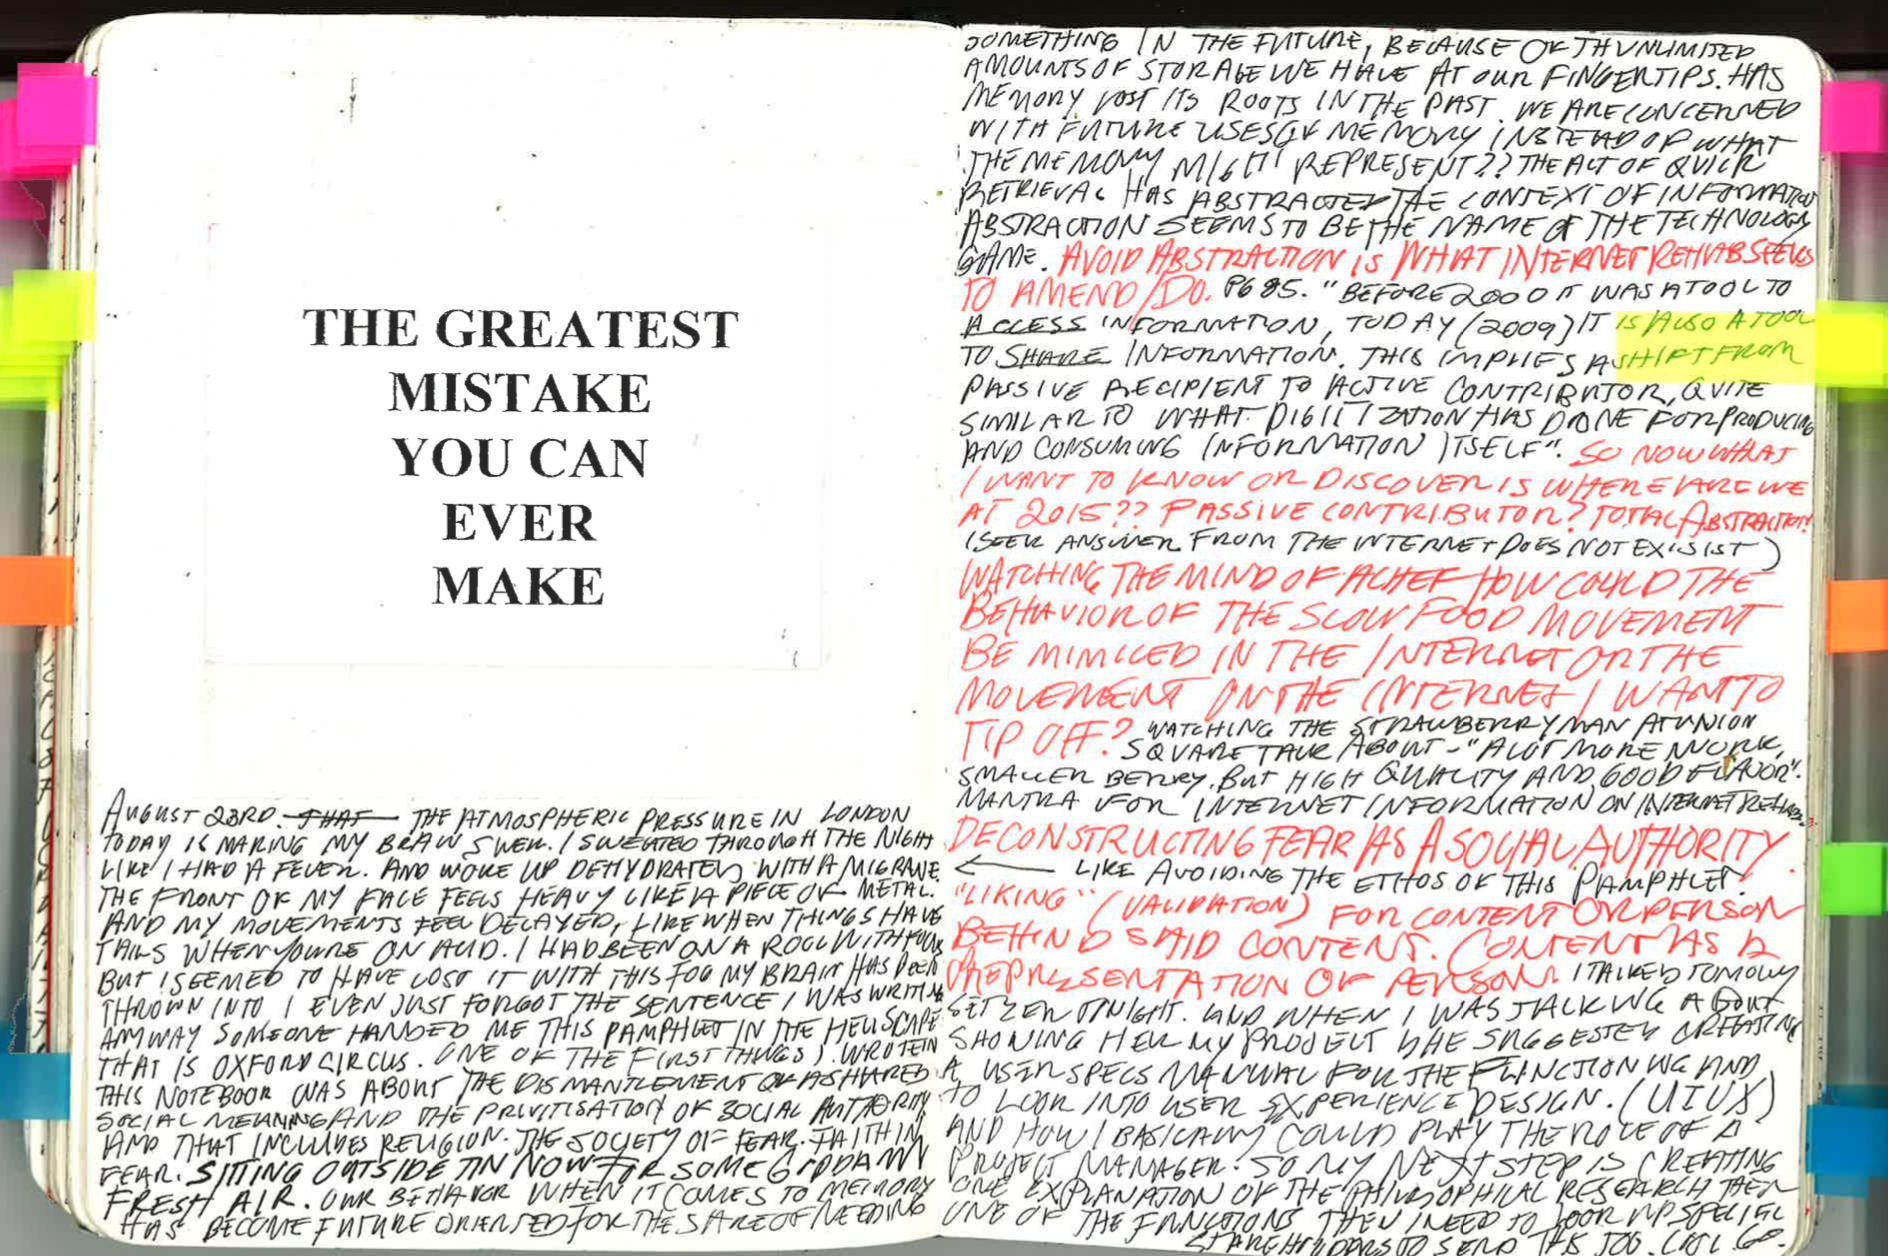 THE GREATEST
MISTAKE
YOU CAN
EVER
MAKE
AUGUST 23RD. THAT THE ATMOSPHERIC PRESSURE IN LONDON
TODAY IS MAKING MY BRAIN SWELL. I SWEATED THROUGH THE NIGHT
LIKE I HAD A FEVER. AND WOKE UP DEHYDRATED WITH A MIGRANE.
THE FRONT OF MY FACE FEELS HEAVY LIKE A PIECE OF METAL.
AND MY MOVEMENTS FEEL DELAYED, LIKE WHEN THINGS HAVE
TAILS WHEN YOURE ON ACID. I HAD BEEN ON A ROLL WITH FOCUS
BUT I SEEMED TO HAVE LOST IT WITH THIS FOG MY BRAIN HAS BEEN
THROWN INTO I EVEN JUST FORGOT THE SENTENCE I WAS WRITING
ANYWAY SOMEONE HANDED ME THIS PAMPHLET IN THE HELLSCAPE
THAT IS OXFORD CIRCUS. ONE OF THE FIRST THINGS I WROTE IN
THIS NOTEBOOK WAS ABOUT THE DISMANTLEMENT OF A SHARED
SOCIAL MEANING AND THE PRIVITISATION OF SOCIAL AUTHORITY
AND THAT INCLUDES RELIGION. THE SOCIETY OF FEAR. FAITH IN
FEAR. SITTING OUTSIDE TIN NOW FOR SOME GODDAMN
FRESH AIR. OUR BEHAVIOR WHEN IT COMES TO MEMORY
HAS BECOME FUTURE ORIENTED FOR THE SAKE OF NEEDING
SOMETHING IN THE FUTURE, BECAUSE OF TH UNLIMITED
AMOUNTS OF STORAGE WE HAVE AT OUR FINGERTIPS. HAS
MEMORY LOST ITS ROOTS IN THE PAST. WE ARE CONCERNED
WITH FUTURE USES OF MEMORY INSTEAD OF WHAT
THE MEMORY MIGHT REPRESENT?? THE ACT OF QUICK
RETRIEVAL HAS ABSTRACTED THE CONTEXT OF INFORMATION
ABSTRACTION SEEMS TO BE THE NAME OF THE TECHNOLOGY
GAME. AVOID ABSTRACTION IS WHAT INTERNET REHAB SEEKS
TO AMEND/DO. PG 85. "BEFORE 2000 IT WAS A TOOL TO
ACCESS INFORMATION, TODAY (2009) IT IS ALSO A TOOL
TO SHARE INFORMATION. THIS IMPLIES A SHIFT FROM
PASSIVE RECIPIENT TO ACTIVE CONTRIBUTOR, QUITE
SIMILAR TO WHAT DIGITIZATION HAS DONE FOR PRODUCING
AND CONSUMING INFORMATION ITSELF". SO NOW WHAT
I WANT TO KNOW OR DISCOVER IS WHERE ARE WE
AT 2015?? PASSIVE CONTRIBUTOR? TOTAL ABSTRACTION?
(SEEK ANSWER FROM THE INTERNET DOES NOT EXISIST)
WATCHING THE MIND OF A CHEF HOW COULD THE
BEHAVIOR OF THE SLOW FOOD MOVEMENT
BE MIMICED IN THE INTERNET OR THE
MOVEMENT ON THE INTERNET I WANT TO
TIP OFF? WATCHING THE STRAWBERRY MAN AT UNION
SQUARE TALK ABOUT - "A LOT MORE WORK,
SMALLER BERRY, BUT HIGH QUALITY AND GOOD FLAVOR".
MANTRA FOR INTERNET INFORMATION ON INTERNET REHAB.
DECONSTRUCTING FEAR AS A SOCIAL AUTHORITY.
LIKE AVOIDING THE ETHOS OF THIS PAMPHLET.
"LIKING" (VALIDATION) FOR CONTENT OR PERSON
BEHIND SAID CONTENT. CONTENT AS A
REPRESENTATION OF PERSON. I TALKED TO MOLLY
TONIGHT. AND WHEN I WAS TALKING ABOUT
SHOWING HER MY PROJECT SHE SUGGESTED CREATING
A USER SPECS MANUAL FOR THE FUNCTIONING AND
TO LOOK INTO USER EXPERIENCE DESIGN. (UI UX)
AND HOW I BASICALLY COULD PLAY THE ROLE OF A
PROJECT MANAGER. SO MY NEXT STEP IS CREATING
ONE EXPLANATION OF THE PHILOSOPHICAL RESEARCH THEN
ONE OF THE FUNCTIONS THEN I NEED TO LOOK UP SPECIFIC
STAKEHOLDERS TO SEND THIS TOO.